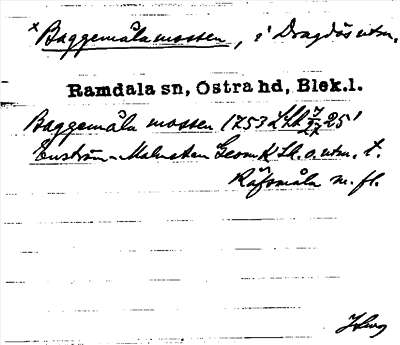 x Baggemåla mossen, i Dragsö utm.
Ramdala sn, Östra hd, Blek.l.
Baggemåla mossen 1753 LSA 25
Enström-Malmsten Geom K Ch. o. utm. t.
Räfsmåla m. fl.